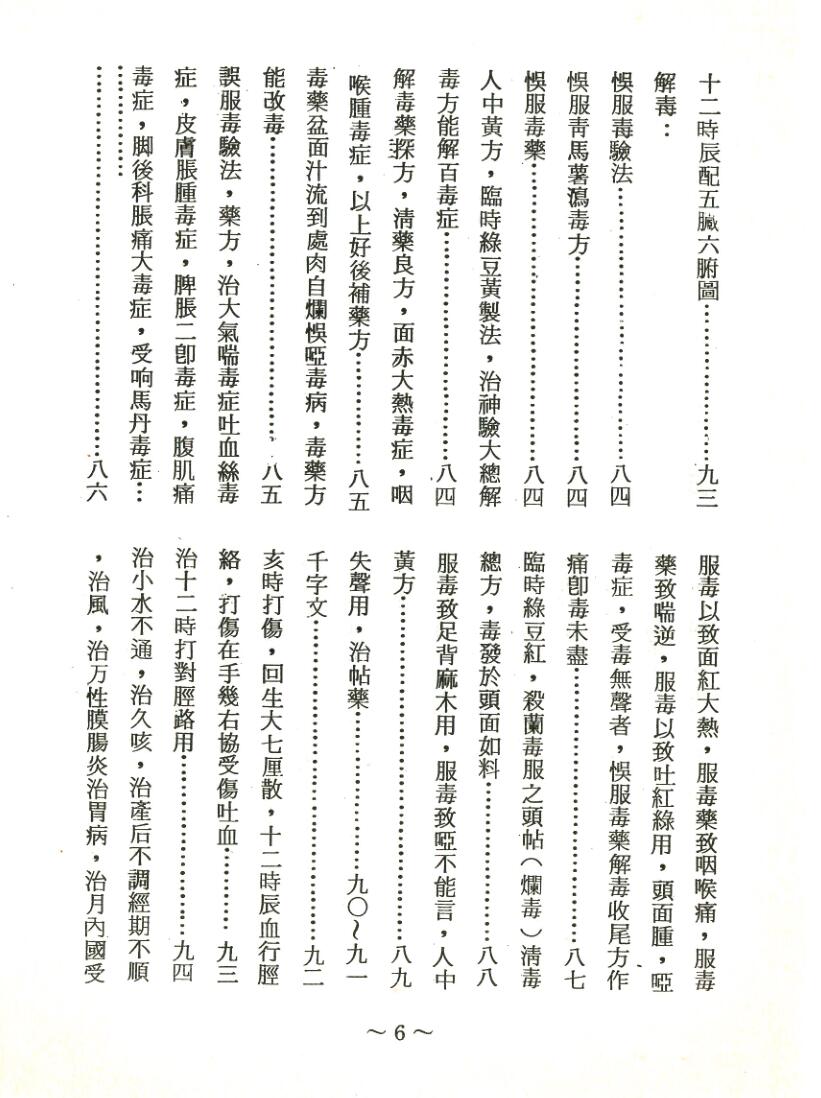 十二時辰配五臟六腑圖……………………九三
解毒：
悞服毒驗法……………………………八四
悞服靑馬薯瀉毒方……………………八四
悞服毒藥………………………………八四
人中黃方，臨時綠豆黃製法，治神驗大總解
毒方能解百毒症………………………八四
解毒藥探方，淸藥良方，面赤大熱毒症，咽
喉腫毒症，以上好後補藥方……………八五
毒藥盆面汁流到處肉自爛悞啞毒病，毒藥方
能改毒…………………………………八五
誤服毒驗法，藥方，治大氣喘毒症吐血絲毒
症，皮膚脹腫毒症，脾脹二卽毒症，腹肌痛
毒症，脚後科脹痛大毒症，受响馬丹毒症…
…………
……………………………………………八六
服毒以致面紅大熱，服毒藥致咽喉痛，服毒
藥致喘逆，服毒以致吐紅綠用，頭面腫，啞
毒症，受毒無聲者，悞服毒藥解毒收尾方作
痛卽毒未盡……………………………八七
臨時綠豆紅，殺蘭毒服之頭帖（爛毒）淸毒
總方，毒發於頭面如料…………………八八
服毒致足背麻木用，服毒致啞不能言，人中
黃方……………………………………八九
失聲用，治帖藥……………………九〇～九一
千字文…………………………………九二
亥時打傷，回生大七厘散，十二時辰血行脛
絡，打傷在手幾右協受傷吐血…………九三
治十二時打對脛路用……………………九四
治小水不通，治久咳，治產后不調經期不順
，治風，治万性膜腸炎治胃病，治月內國受
～6～